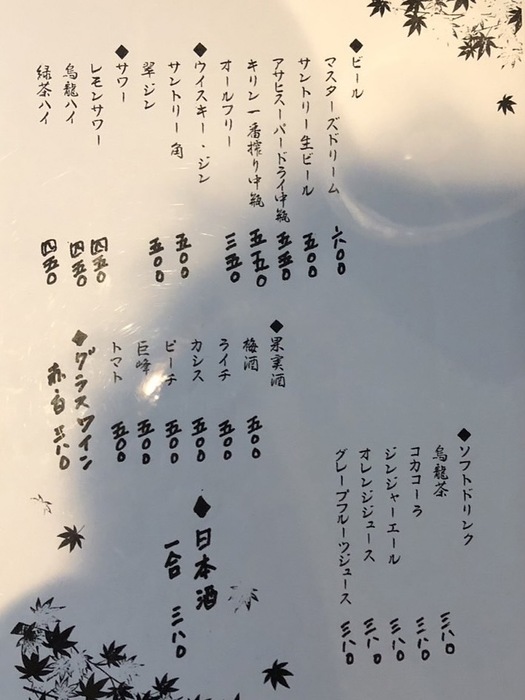 ◆ビール
マスターズドリーム 六〇〇
サントリー生ビール 五〇〇
アサヒスーパードライ中瓶 五五〇
キリン一番搾り中瓶 五五〇
オールフリー 三五〇
◆ウイスキー・ジン
サントリー角 五〇〇
翠ジン 五〇〇
◆サワー
レモンサワー 四五〇
烏龍ハイ 四五〇
緑茶ハイ 四五〇
◆果実酒
梅酒 五〇〇
ライチ 五〇〇
カシス 五〇〇
ピーチ 五〇〇
巨峰 五〇〇
トマト 五〇〇
◆グラスワイン
赤・白 三八〇
◆ソフトドリンク
烏龍茶 三八〇
コカコーラ 三八〇
ジンジャーエール 三八〇
オレンジジュース 三八〇
グレープフルーツジュース 三八〇
◆日本酒
一合 三八〇